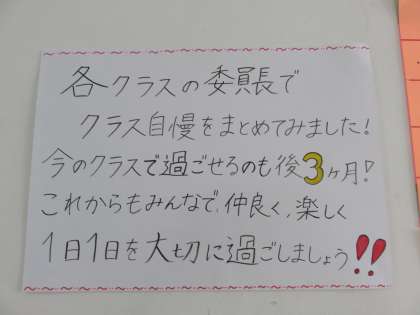 各クラスの委員長で
クラス自慢をまとめてみました!
今のクラスで過ごせるのも後3ヶ月!
これからもみんなで、仲良く、楽しく
1日1日を大切に過ごしましょう!!